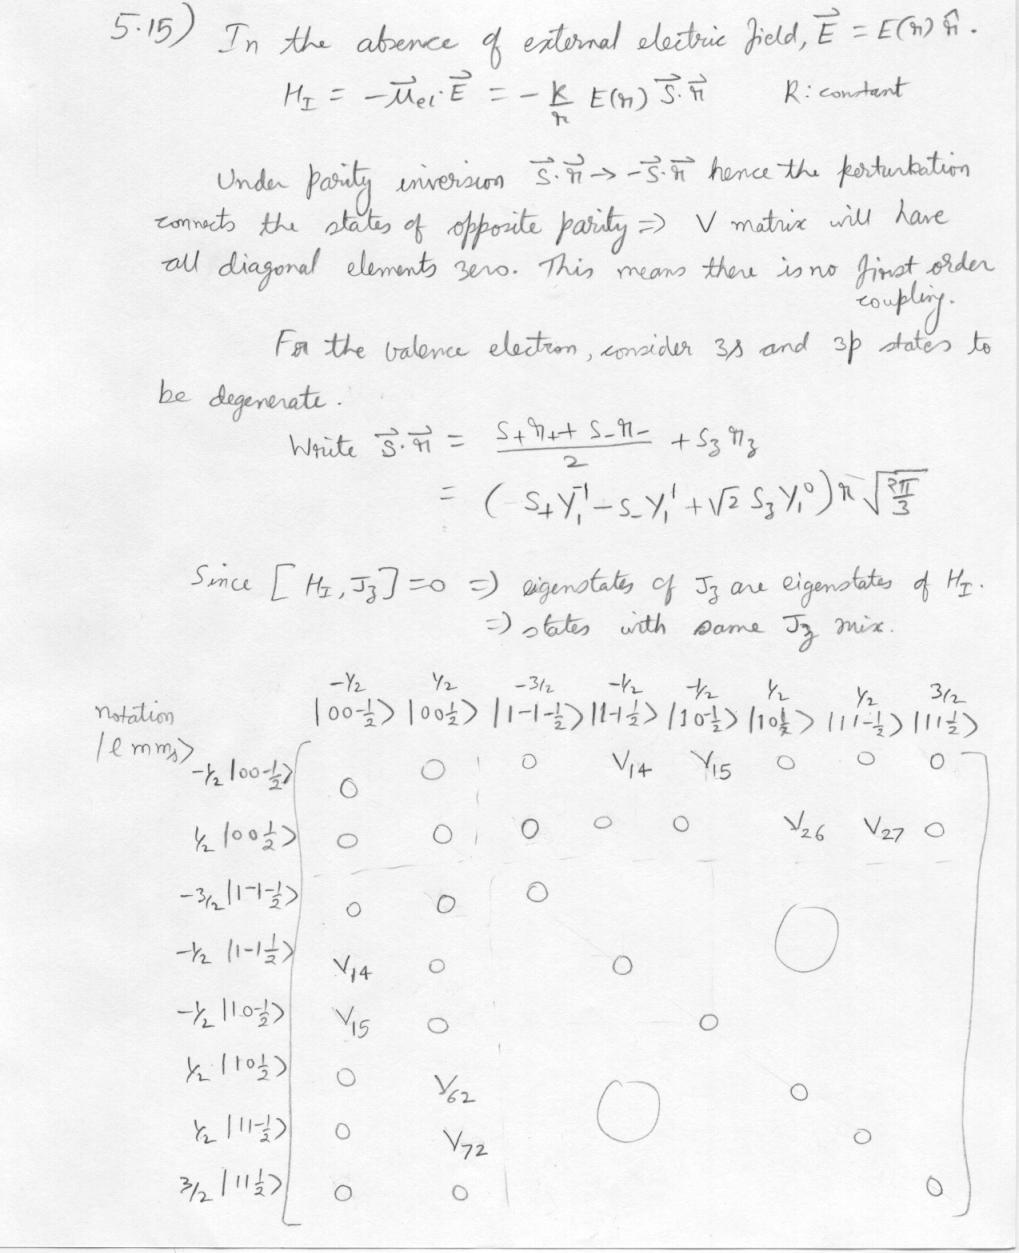 5.15) In the absence of external electric field, E⃗ = E(r) r̂.
H_I = -μ⃗_el·E⃗ = - K/r E(r) S⃗·r⃗    K: constant
Under parity inversion S⃗·r⃗ → -S⃗·r⃗ hence the perturbation
connects the states of opposite parity ⇒ V matrix will have
all diagonal elements zero. This means there is no first order
coupling.
For the valence electron, consider 3s and 3p states to
be degenerate.
Write S⃗·r⃗ = (S₊r₊ + S₋r₋)/2 + S_z r_z
= (S₊Y₁⁻¹ - S₋Y₁¹ + √2 S_z Y₁⁰) r √(2π/3)
Since [H_I, J_z] = 0 ⇒ eigenstates of J_z are eigenstates of H_I.
⇒ states with same J_z mix.
-1/2 1/2 -3/2 -1/2 -1/2 1/2 1/2 3/2
notation |00-1/2> |00 1/2> |1-1-1/2> |1-1 1/2> |10-1/2> |10 1/2> |11-1/2> |11 1/2>
|l m m_s>
-1/2 |00-1/2> 0 0 0 V14 V15 0 0 0
1/2 |00 1/2> 0 0 0 0 0 V26 V27 0
-3/2 |1-1-1/2> 0 0 0
-1/2 |1-1 1/2> V14 0 0 0
-1/2 |10-1/2> V15 0 0
1/2 |10 1/2> 0 V62 0 0
1/2 |11-1/2> 0 V72 0
3/2 |11 1/2> 0 0 0